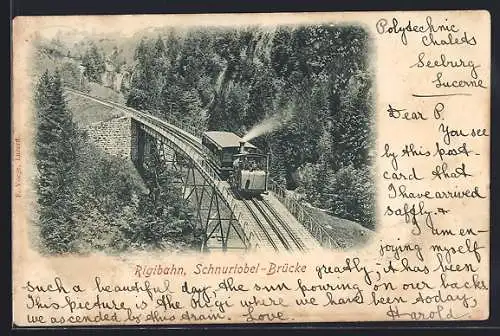 Polytechnic
Chalets
Seeburg
Lucerne
Dear P.
You see
by this post-
card that
I have arrived
saffly. &
I am en-
joying myself
Rigibahn, Schnurtobel-Brücke
greatly, it has been
such a beautiful day the sun pouring on our backs
This picture is the Rigi where we have been today
we ascended by this train. Love. Harold.